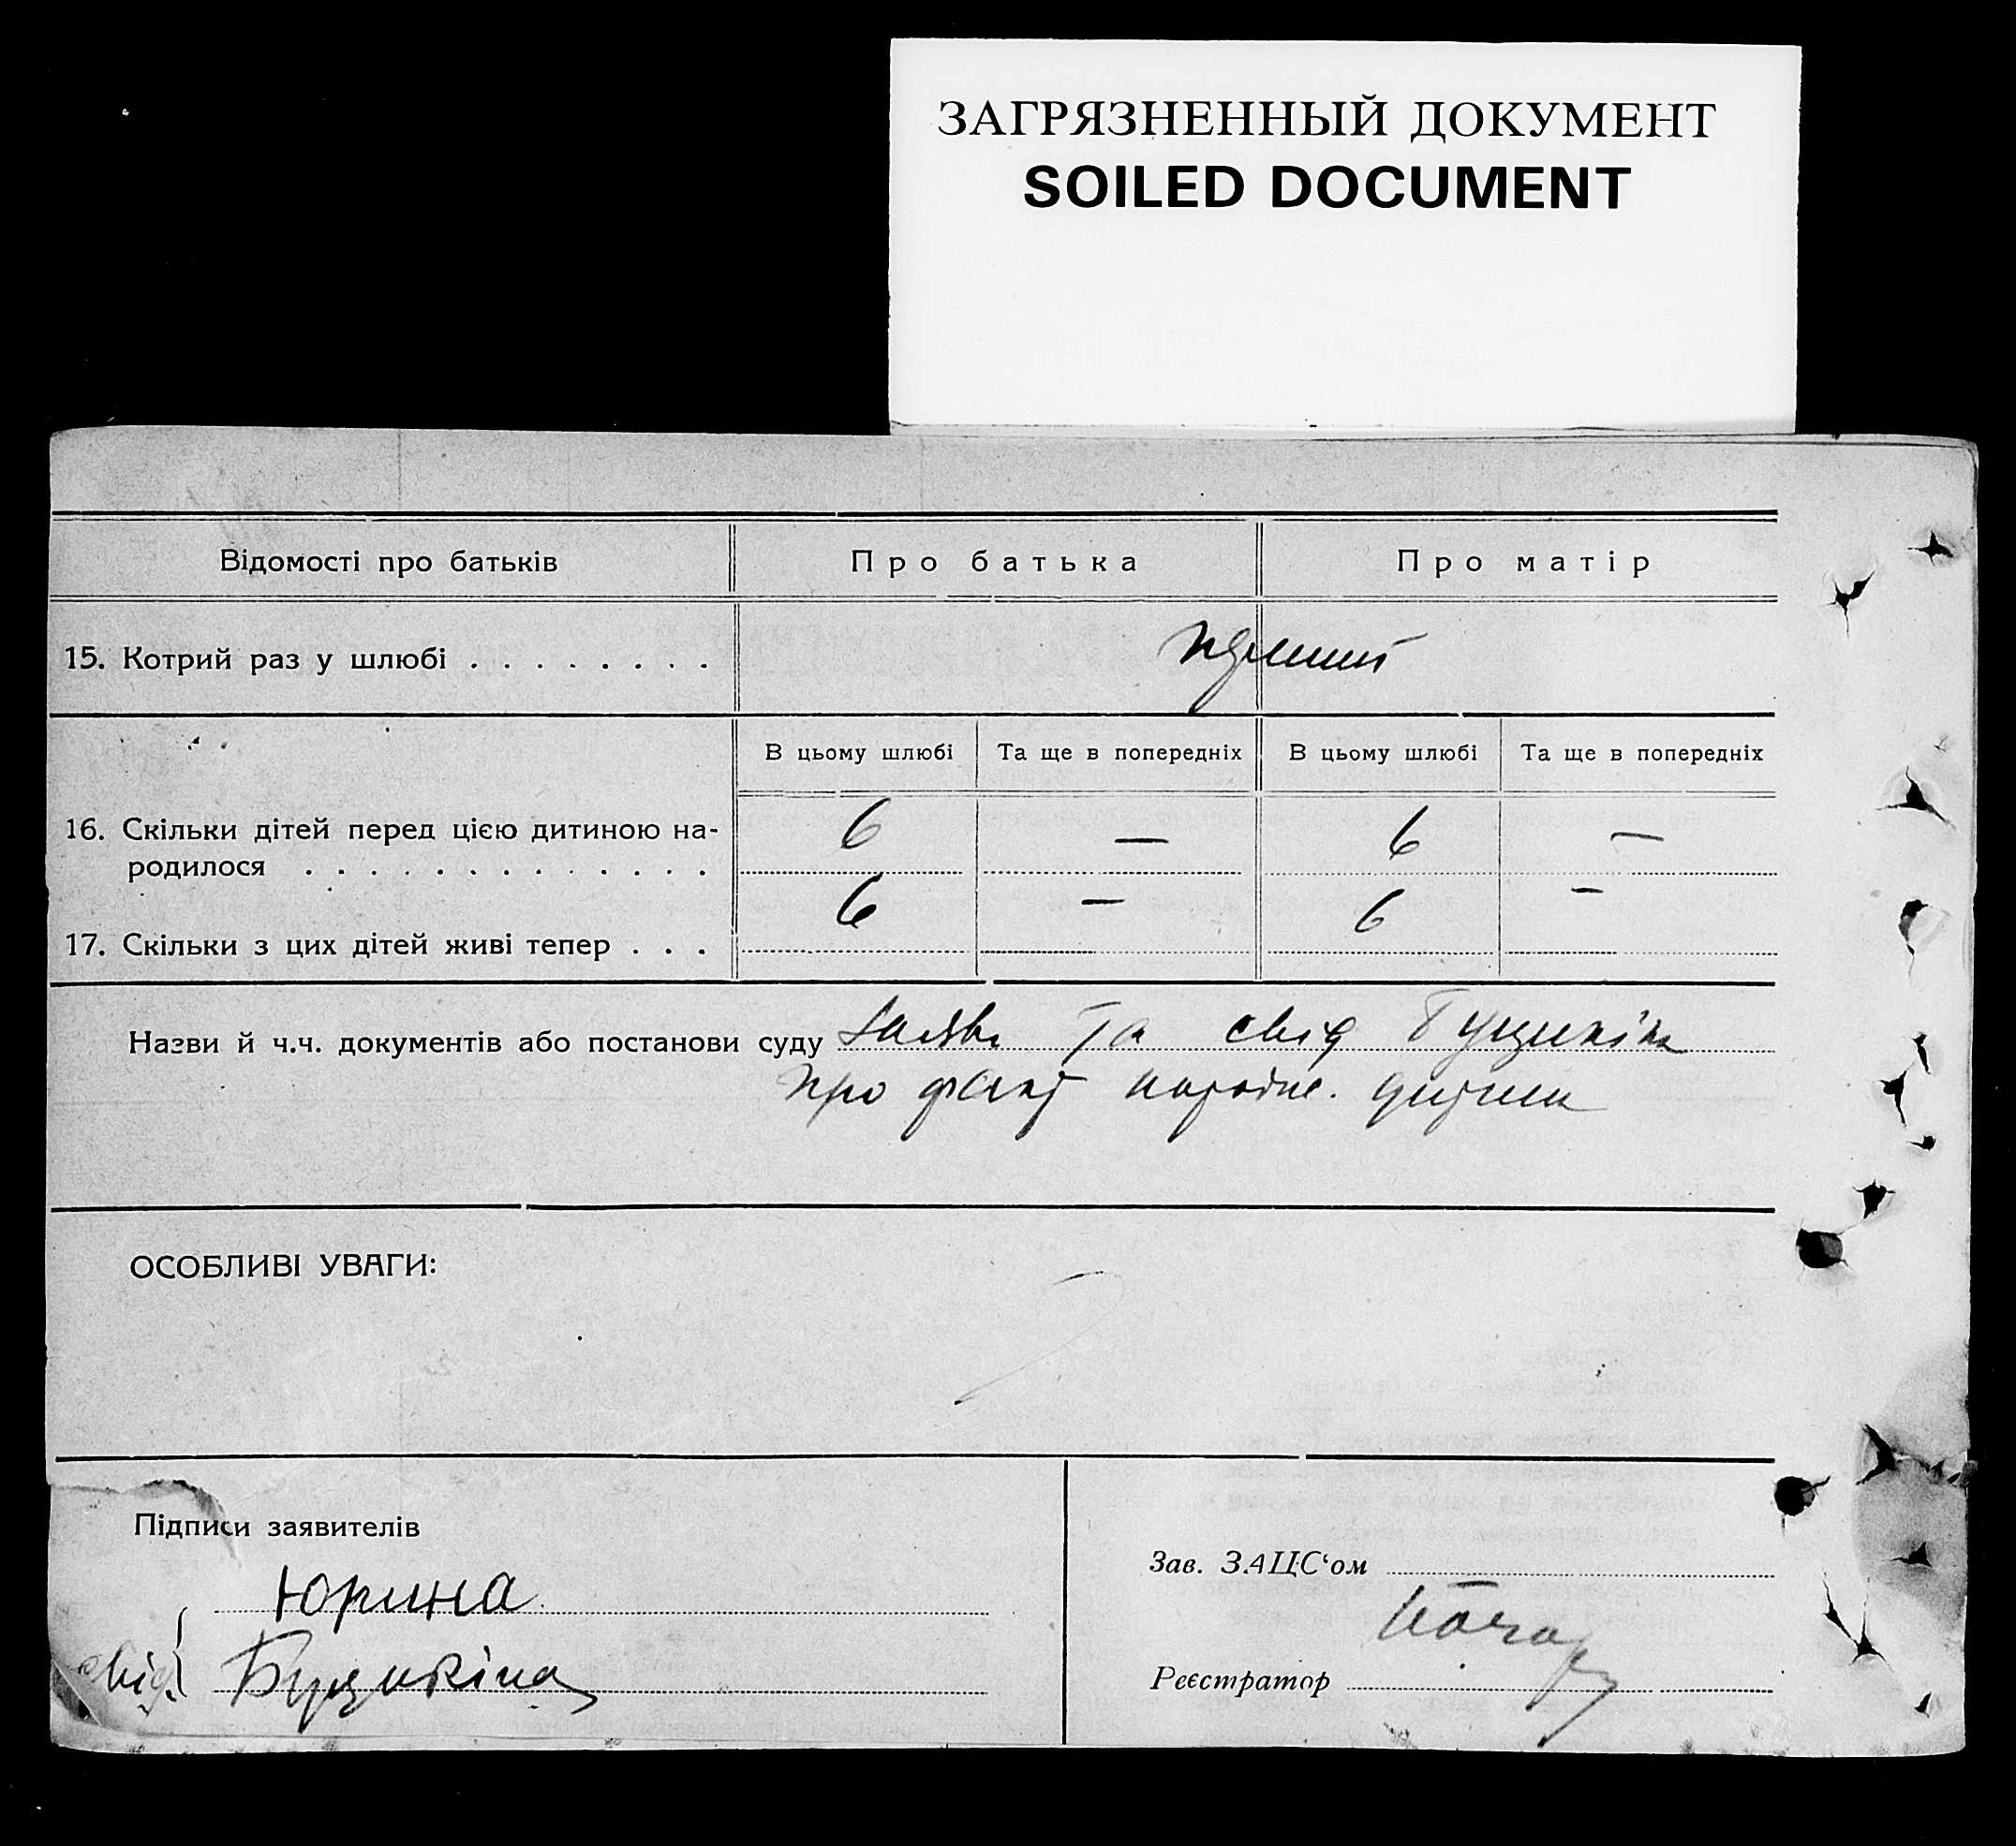 ЗАГРЯЗНЕННЫЙ ДОКУМЕНТ
SOILED DOCUMENT
Відомості про батьків Про батька Про матір
15. Котрий раз у шлюбі . . . . . . . .
В цьому шлюбі Та ще в попередніх В цьому шлюбі Та ще в попередніх
16. Скільки дітей перед цією дитиною на-
родилося . . . . . . . . . . . . . 6 — 6 —
17. Скільки з цих дітей живі тепер . . . 6 — 6 —
Назви й ч.ч. документів або постанови суду та свід
про факт дитини
ОСОБЛИВІ УВАГИ:
Підписи заявителів
Юрина
свід.
Зав. ЗАЦС‘ом
Реєстратор